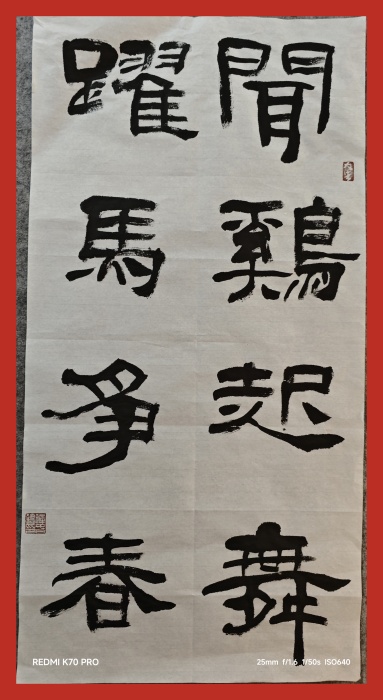 聞鷄起舞
躍馬爭春
REDMI K70 PRO
25mm f/1.6 1/50s ISO640